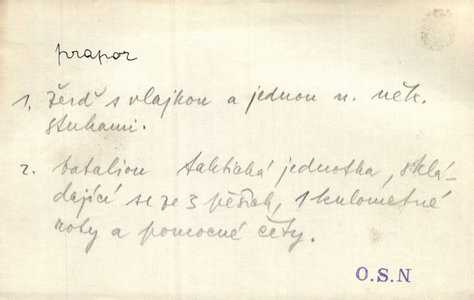 prapor
1. žerď s vlajkou a jednou n. něk.
stuhami.
2. batalion taktická jednotka, sklá-
dající se ze 3 pěších, 1 kulometné
roty a pomocné čety.
O.S.N